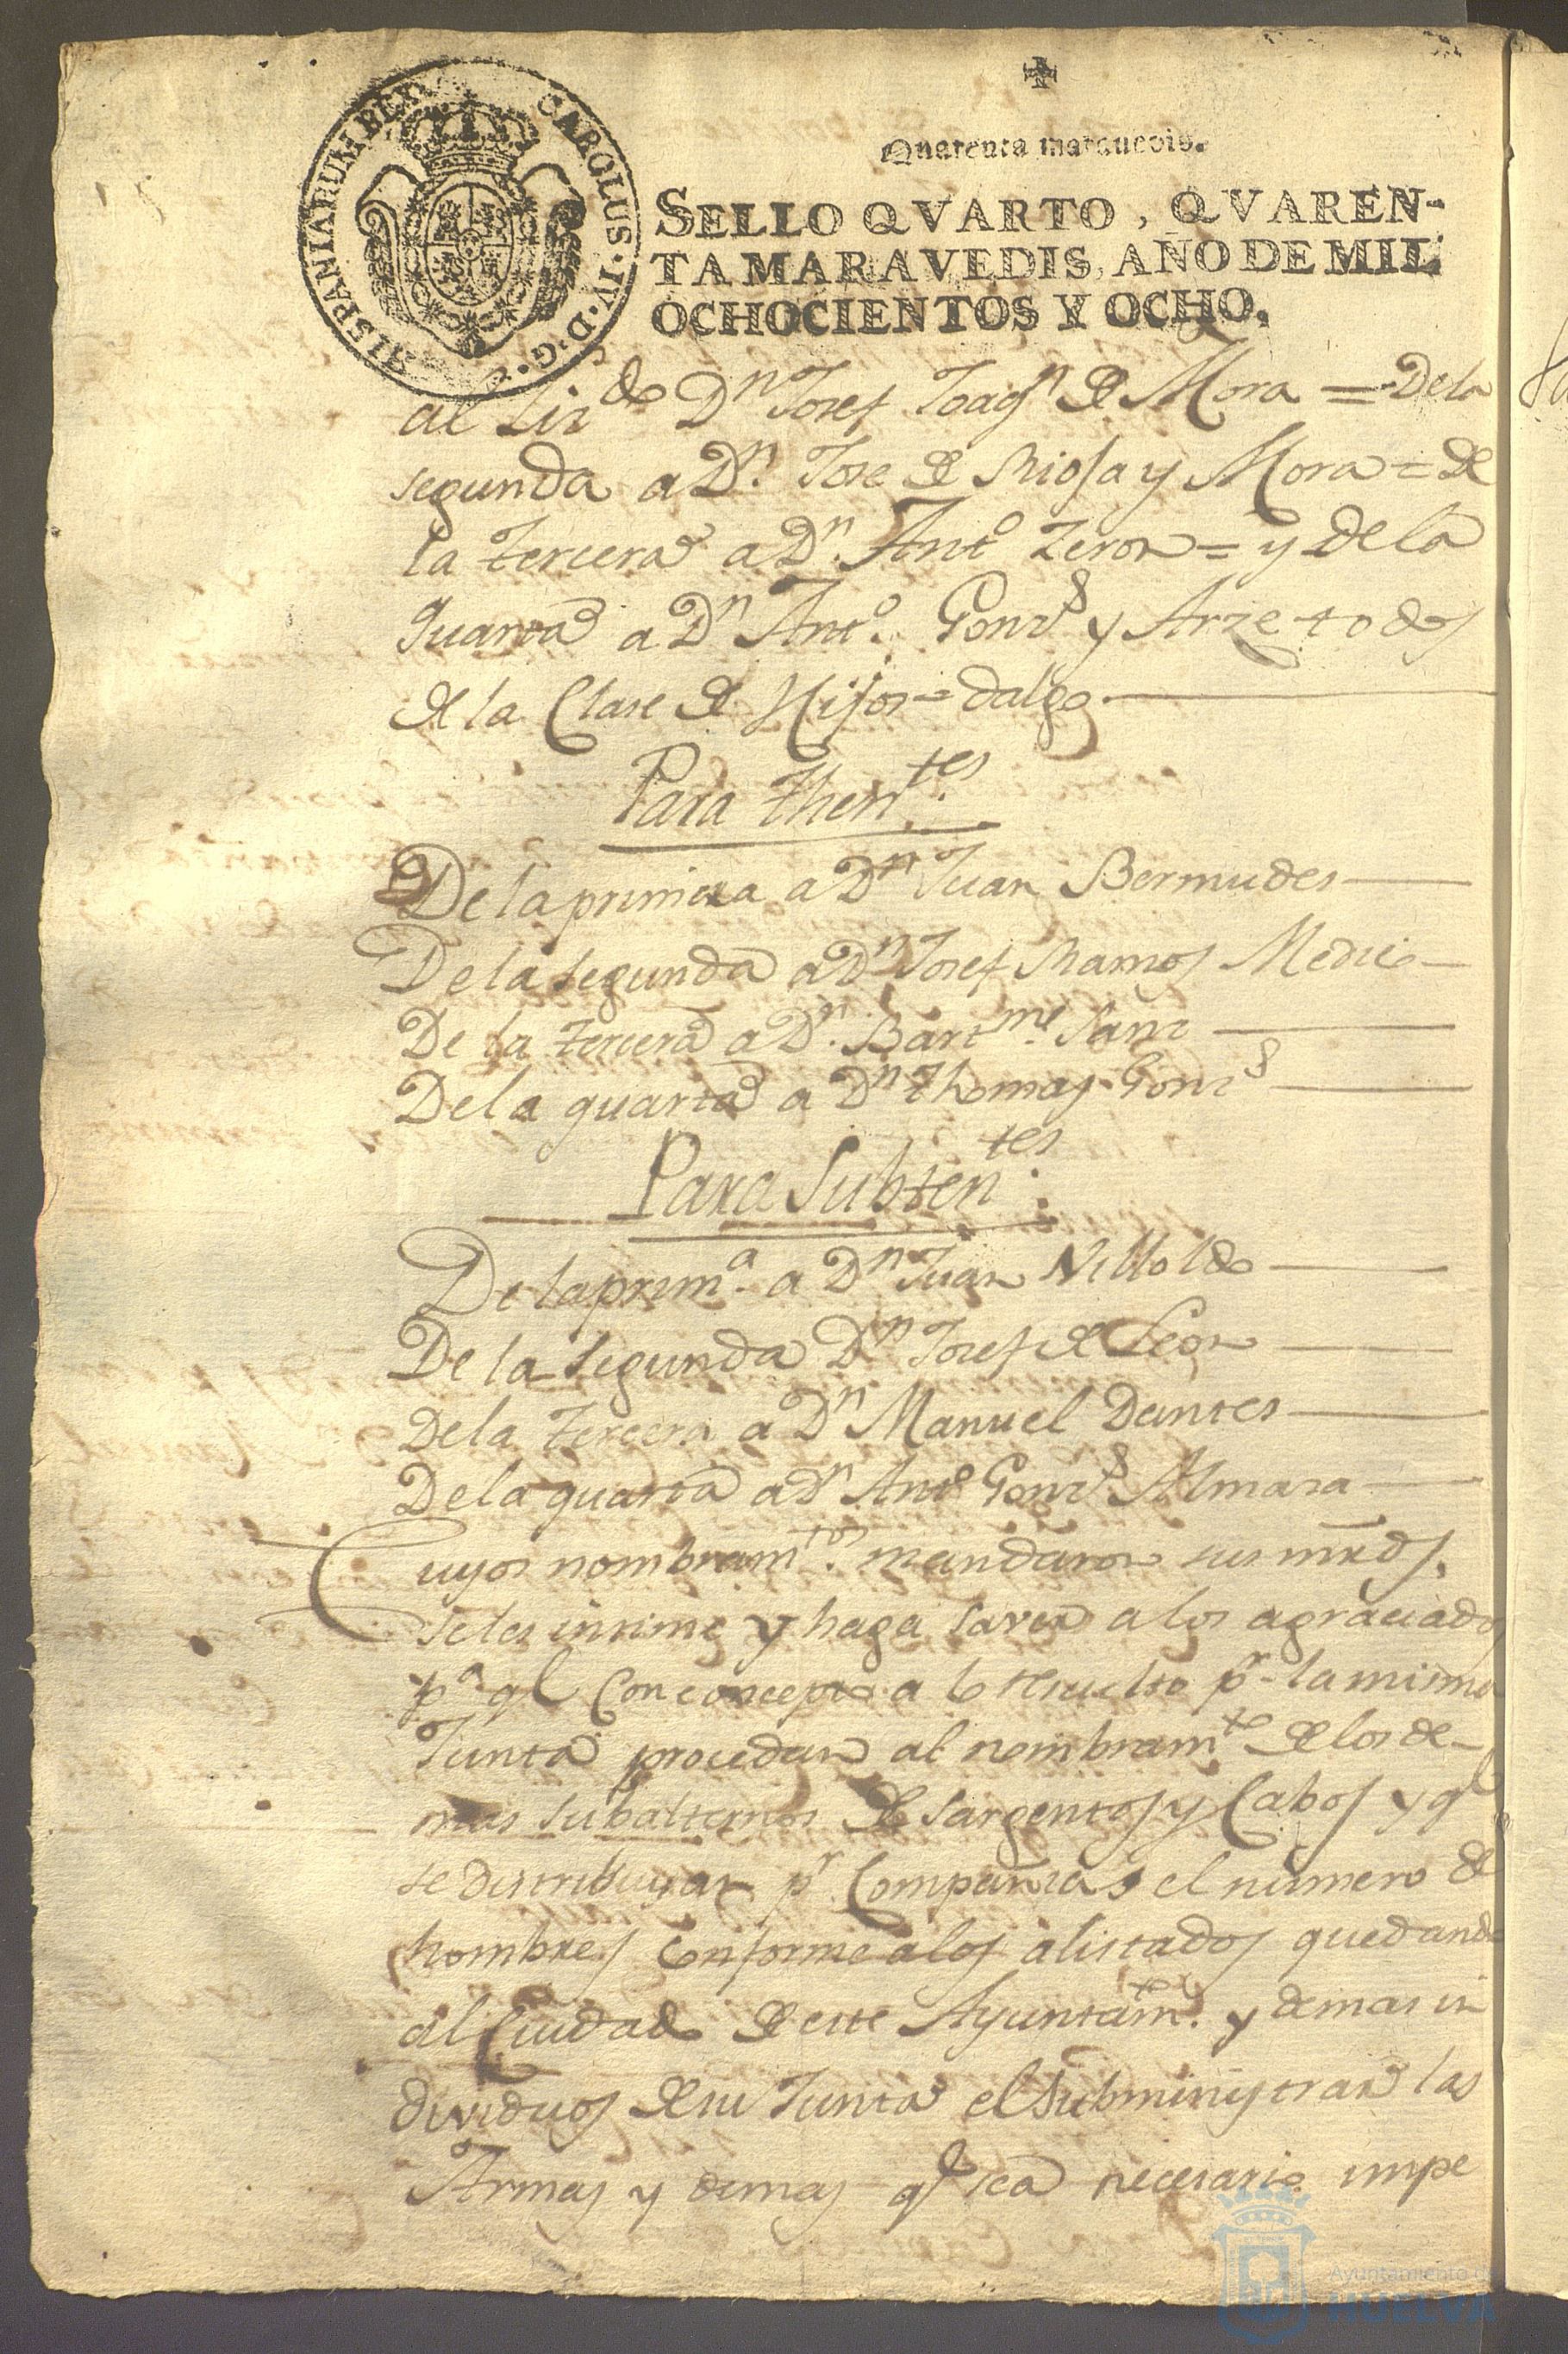 Quarenta maravedis.
HISPANIARUM REX CAROLUS·IV·D·G·
SELLO QVARTO, QVAREN-
TA MARAVEDIS, AÑO DE MIL
OCHOCIENTOS Y OCHO.
al Liz.do Dn Josef Joaqn de Mora = De la
segunda a Dn. Jose de Rioja y Mora = de
la tercera a Dn. Anto Zeron = y de la
quarta a Dn Anto. Gonzs y Arze todos
de la Clase de Hijos=dalgo.
Para Thentes.
De la primera a Dn Juan Bermudes
De la segunda a Dn Josef Ramos Medico
De la tercera a Dn. Bartme. Sanz
De la quarta a Dn Thomas Gonzs
Para Subtentes.
De la prima. a Dn Juan Villoldo
De la segunda Dn Josef de Leon
De la tercera a Dn Manuel Dantes
De la quarta a Dn Anto Gonzs. Almara
Cuyos nombramtos. mandaron sus mrds.
se les intime y haga saver a los agraciados
pa. qe Con concepto a lo resuelto pr. la misma
Junta procedan al nombramto. de los de-
mas subalternos de sargentos y Cabos y qe
se distribuyan pr. Compañias el numero de
hombres conforme a los alistados quedando
al Cuidado de este Ayuntamto. y demas in
dividuos de su Junta el subministrar las
Armas y demas qe sea necesario impe
Ayuntamiento de
HUELVA